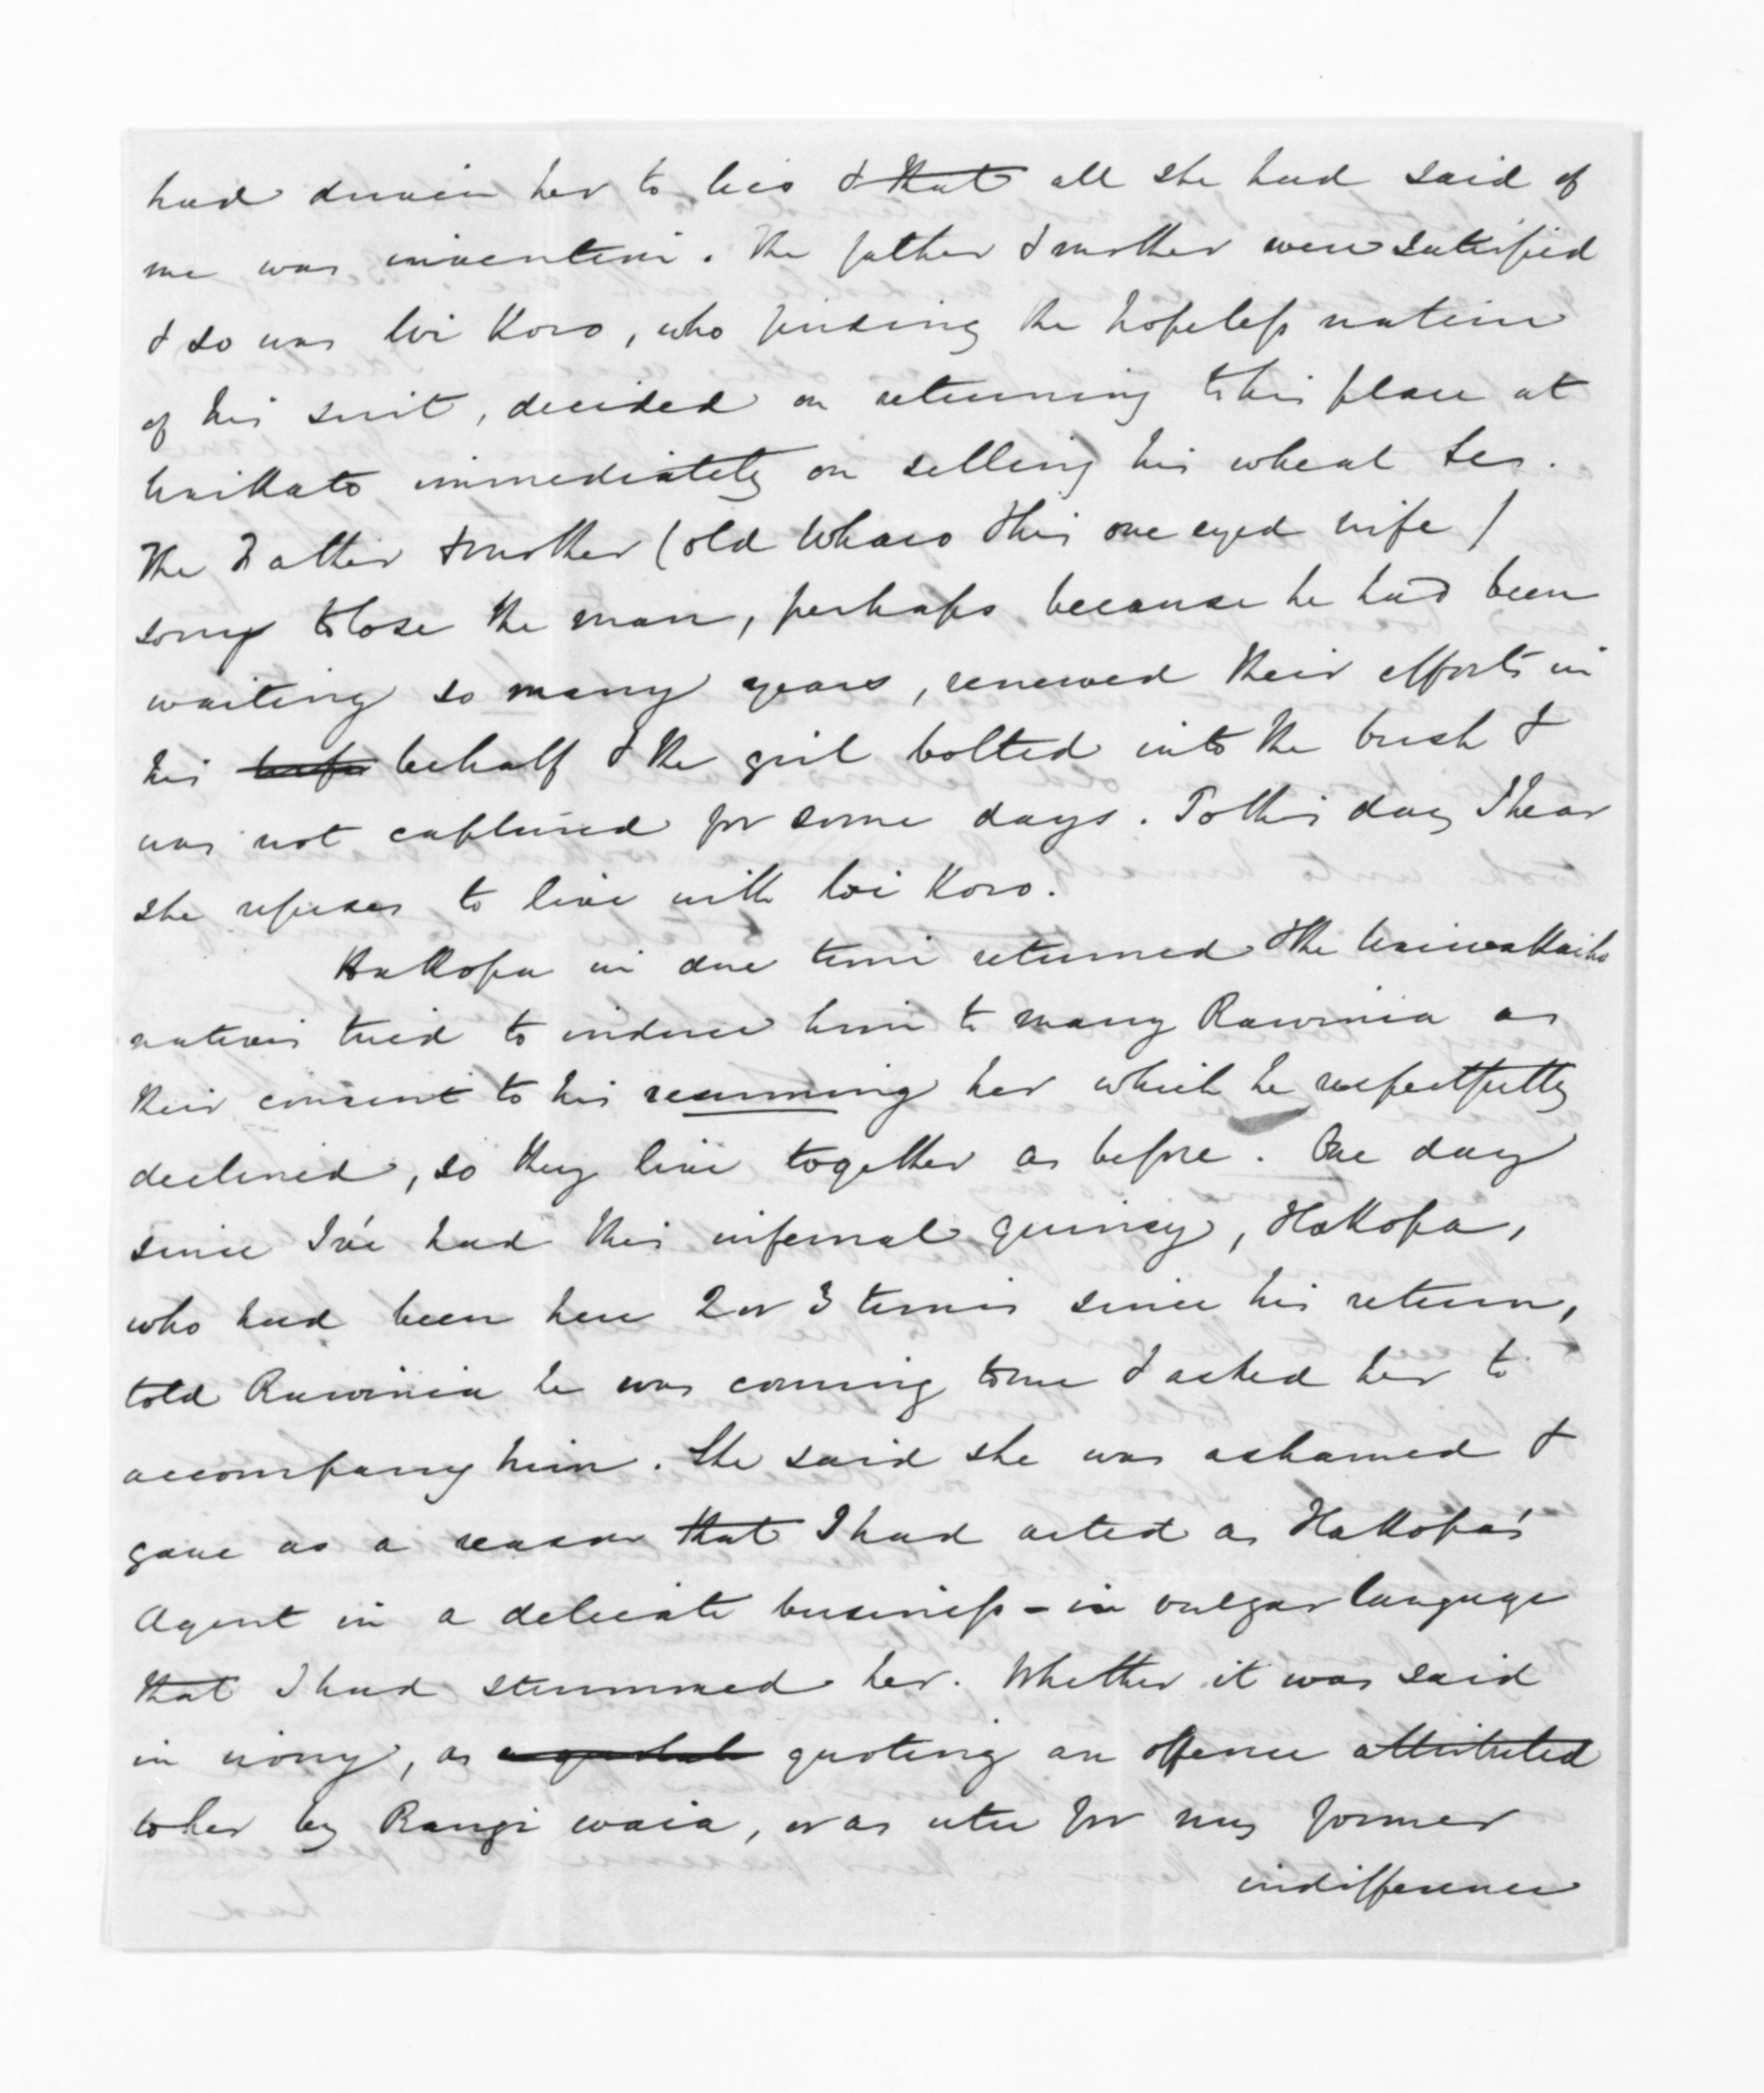 had driven her to lies & that all she had said of
me was invention. The father & mother were satisfied
& so was Wi Koro, who finding the hopeless nature
of his suit, decided on returning to his place at
Waikato immediately on selling his wheat &c.
The Father & mother (old Wharo & his one eyed wife)
sorry to lose the man, perhaps because he had been
waiting so many years, renewed their efforts in
his behalf & the girl bolted into the bush &
was not captured for some days. To this day I hear
she refuses to live with Wi Koro.
Hakopa in due time returned & the Waiwakaiho
natives tried to induce him to marry Rawinia as
their consent to his resuming her which he respectfully
declined, so they live together as before. One day
since I've had this infernal quincy, Hakopa,
who had been here 2 or 3 times since his return,
told Rawinia he was coming to me & asked her to
accompany him. She said she was ashamed &
gave as a reason that I had acted as Hakopa's
Agent in a delicate business - in vulgar language
that I had strummed her. Whether it was said
in irony, as quoting an offence attributed
to her by Rangi waia, or as utu for my former
indifference